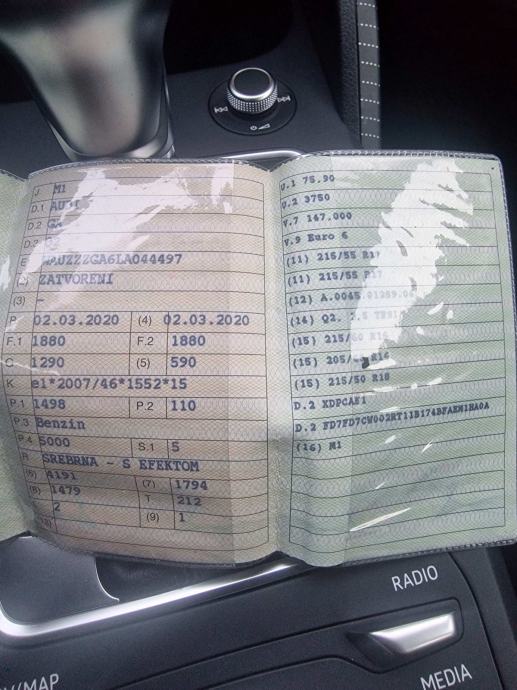 J M1
D.1 AUDI
D.2 GA
D.3
E WAUZZZGA6LA044497
ZATVORENI
(3) -
B 02.03.2020 (4) 02.03.2020
F.1 1880 F.2 1880
G 1290 (5) 590
K e1*2007/46*1552*15
P.1 1498 P.2 110
P.3 Benzin
P.4 5000 S.1 5
R SREBRNA - S EFEKTOM
(6) 4191 (7) 1794
(8) 1479 T 212
2 (9) 1
U.1 75.90
U.2 3750
V.7 147.000
V.9 Euro 6
(11) 215/55 R17
(11) 215/55 R17
(12)
(14) Q2.
(15) 215/60 R16
(15) R16
(15) 215/50 R18
D.2 XDPCAF1
D.2
(16) M1
RADIO
/MAP
MEDIA